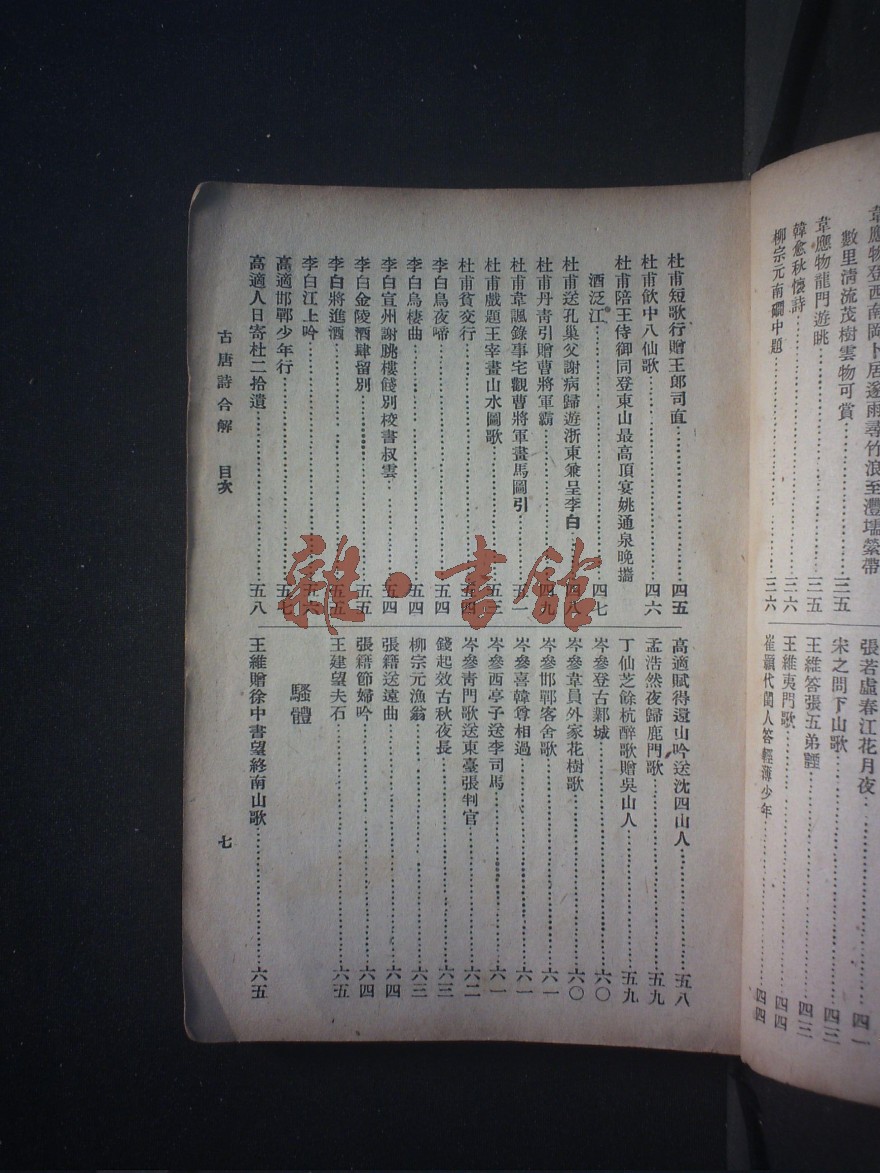 韋應物登西南岡卜居遂雨尋竹浪至灃壖縈帶
數里清流茂樹雲物可賞……三五
韋應物龍門遊眺……三五
韓愈秋懷詩……三六
柳宗元南磵中題……三六
張若虛春江花月夜……四一
宋之問下山歌……四三
王維答張五弟諲……四三
王維夷門歌……四四
崔顥代閨人答輕薄少年……四四
杜甫短歌行贈王郎司直……四五
杜甫飲中八仙歌……四六
杜甫陪王侍御同登東山最高頂宴姚通泉晚攜
酒泛江……四七
杜甫送孔巢父謝病歸遊浙東兼呈李白……四八
杜甫丹青引贈曹將軍霸……四九
杜甫韋諷錄事宅觀曹將軍畫馬圖引……五一
杜甫戲題王宰畫山水圖歌……五三
杜甫貧交行……五四
李白烏夜啼……五四
李白烏棲曲……五四
李白宣州謝朓樓餞別校書叔雲……五四
李白金陵酒肆留別……五五
李白將進酒……五五
李白江上吟……五六
高適邯鄲少年行……五七
高適人日寄杜二拾遺……五八
高適賦得還山吟送沈四山人……五八
孟浩然夜歸鹿門歌……五九
丁仙芝餘杭醉歌贈吳山人……五九
岑參登古鄴城……六〇
岑參韋員外家花樹歌……六〇
岑參邯鄲客舍歌……六一
岑參喜韓尊相過……六一
岑參西亭子送李司馬……六一
岑參青門歌送東臺張判官……六二
錢起效古秋夜長……六三
柳宗元漁翁……六三
張籍送遠曲……六四
張籍節婦吟……六四
王建望夫石……六五
騷體
王維贈徐中書望終南山歌……六五
古唐詩合解 目次
七
雜·書館